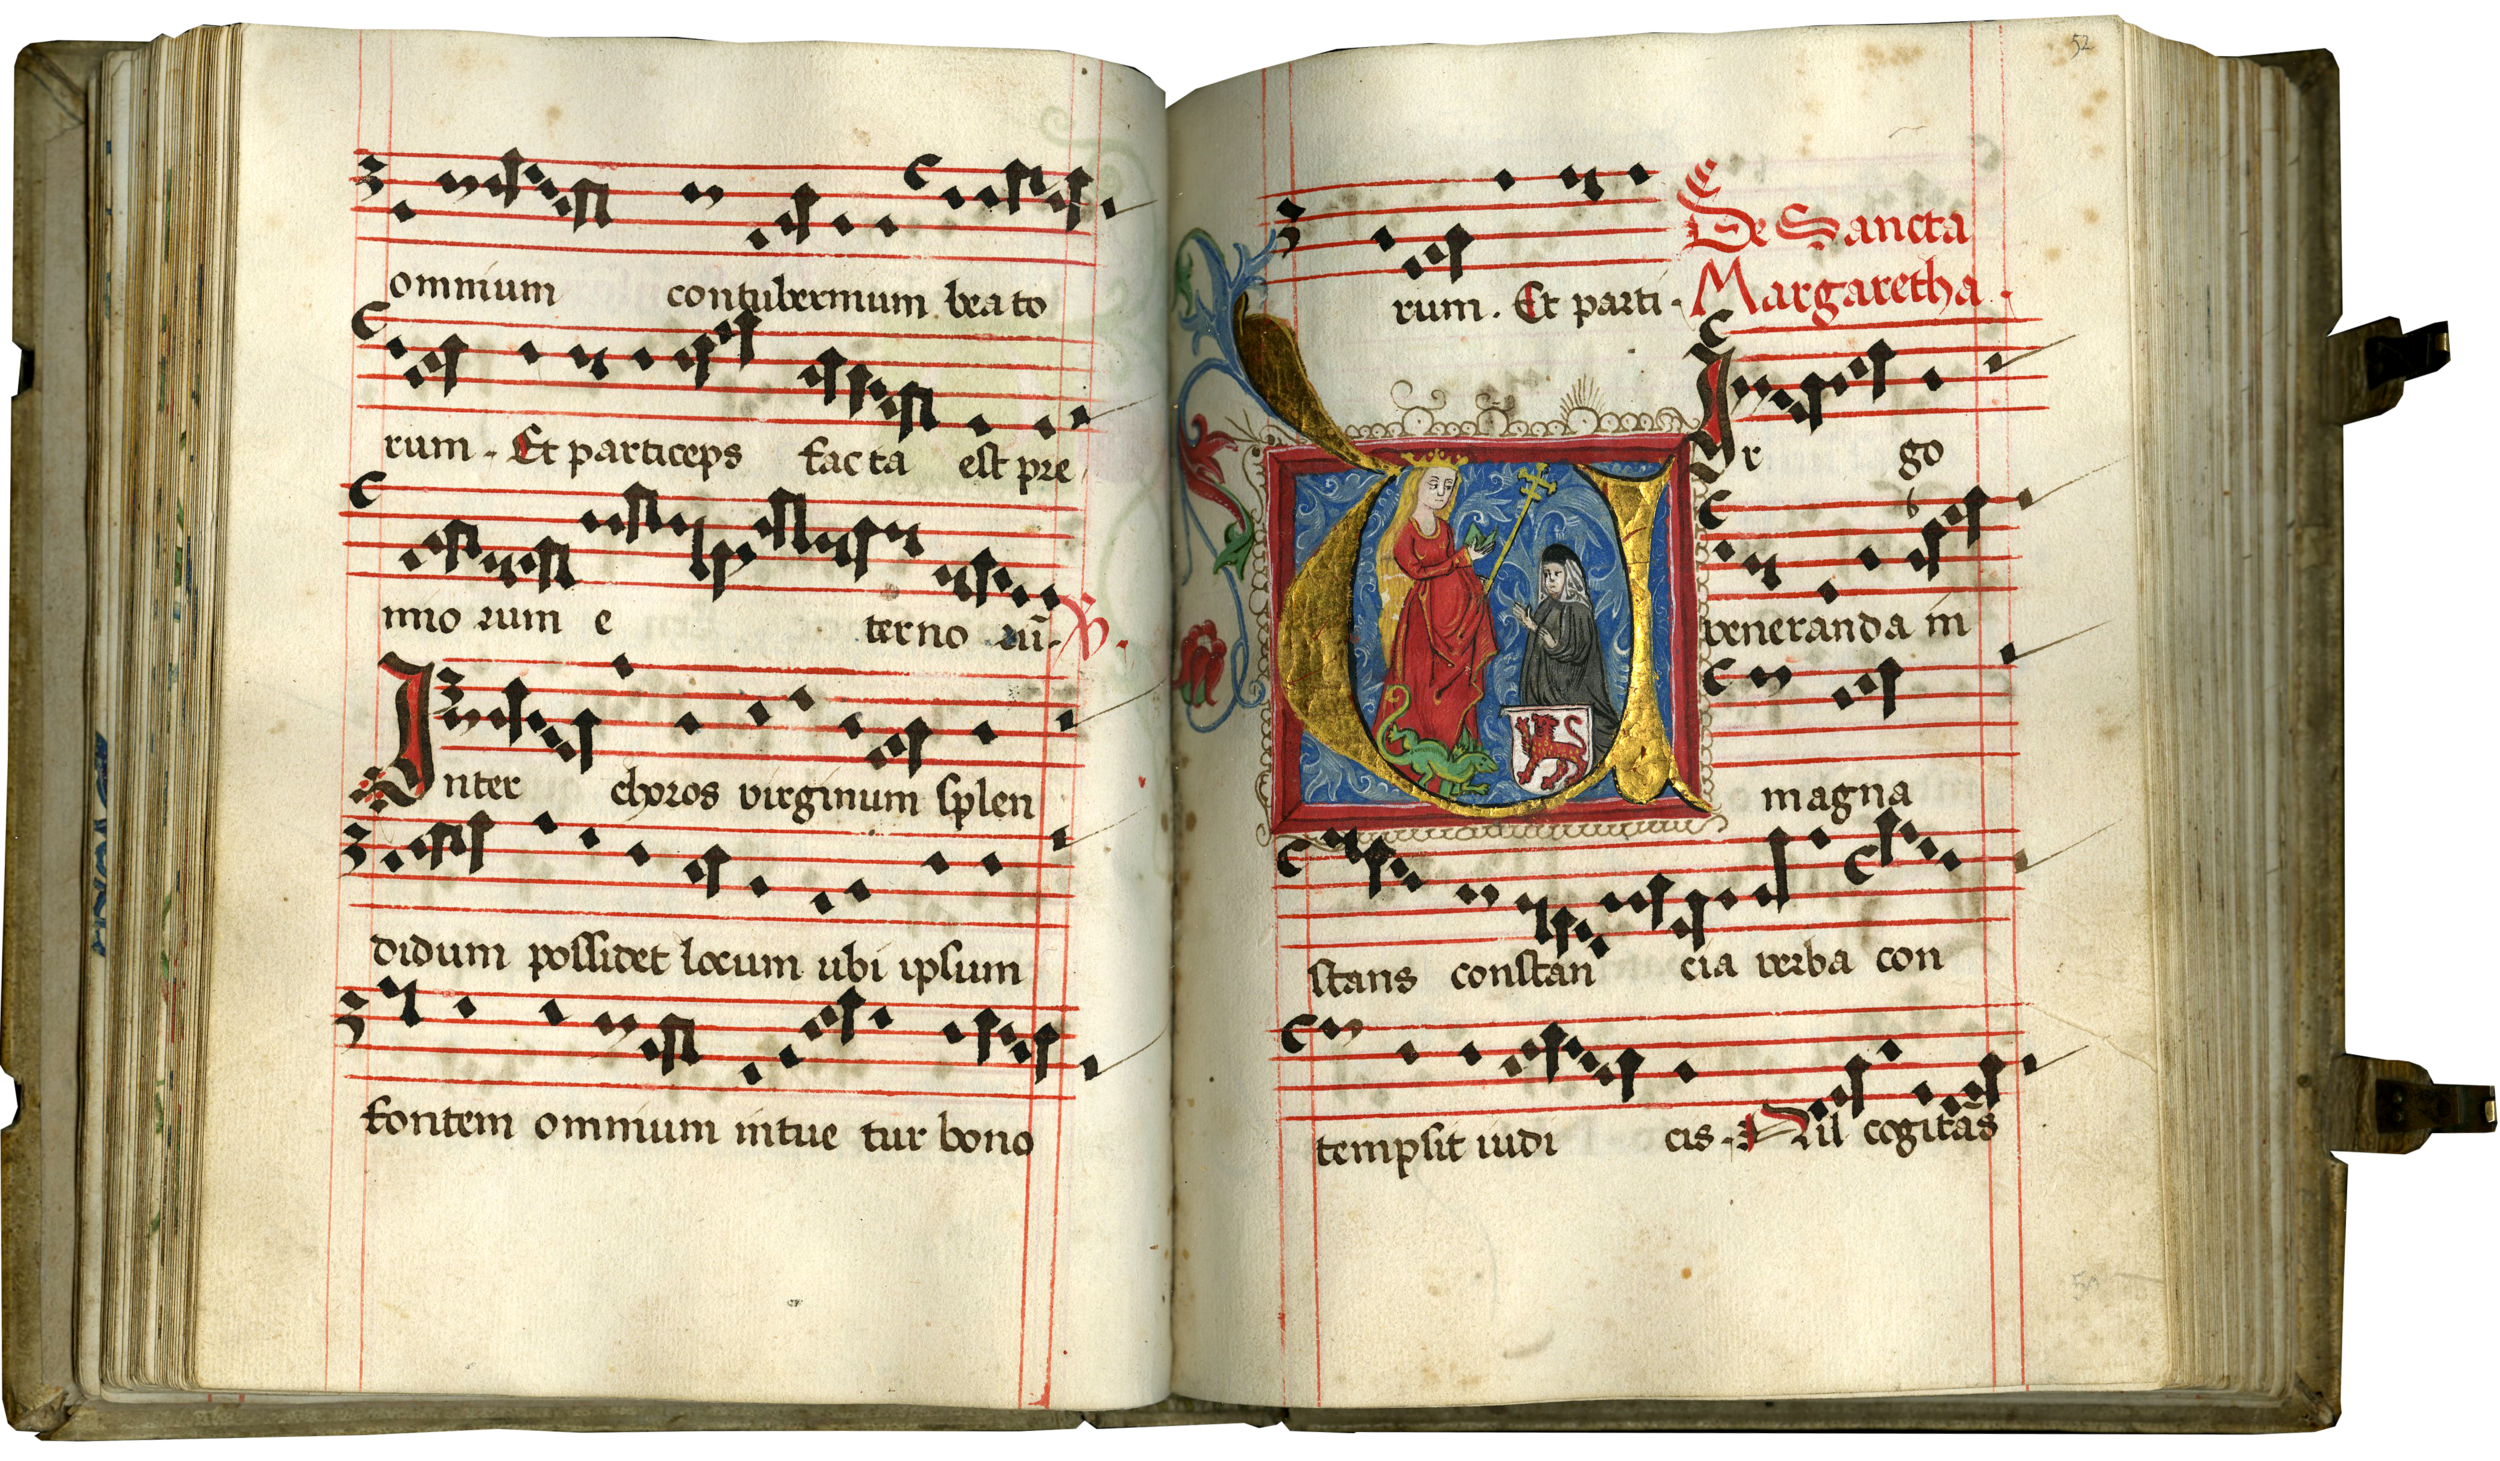 omnium contubernium beato
rum. Et particeps facta est pre
mio rum e terno rū. R.
Inter choros virginum splen
didum possidet locum ubi ipsum
fontem omnium intue tur bono
52
rum. Et parti.
De Sancta
Margaretha.
Vir go
veneranda in
magna
stans constan cia verba con
tempsit iudi cis. Nil cogitās